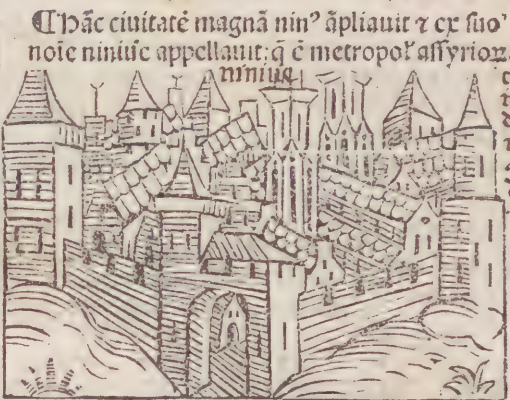 ¶Hāc ciuitatē magnā ninꝰ āpliauit ⁊ ex suo
noīe niniuē appellauit: q̄ ē metropol' assyrioꝝ
niniue